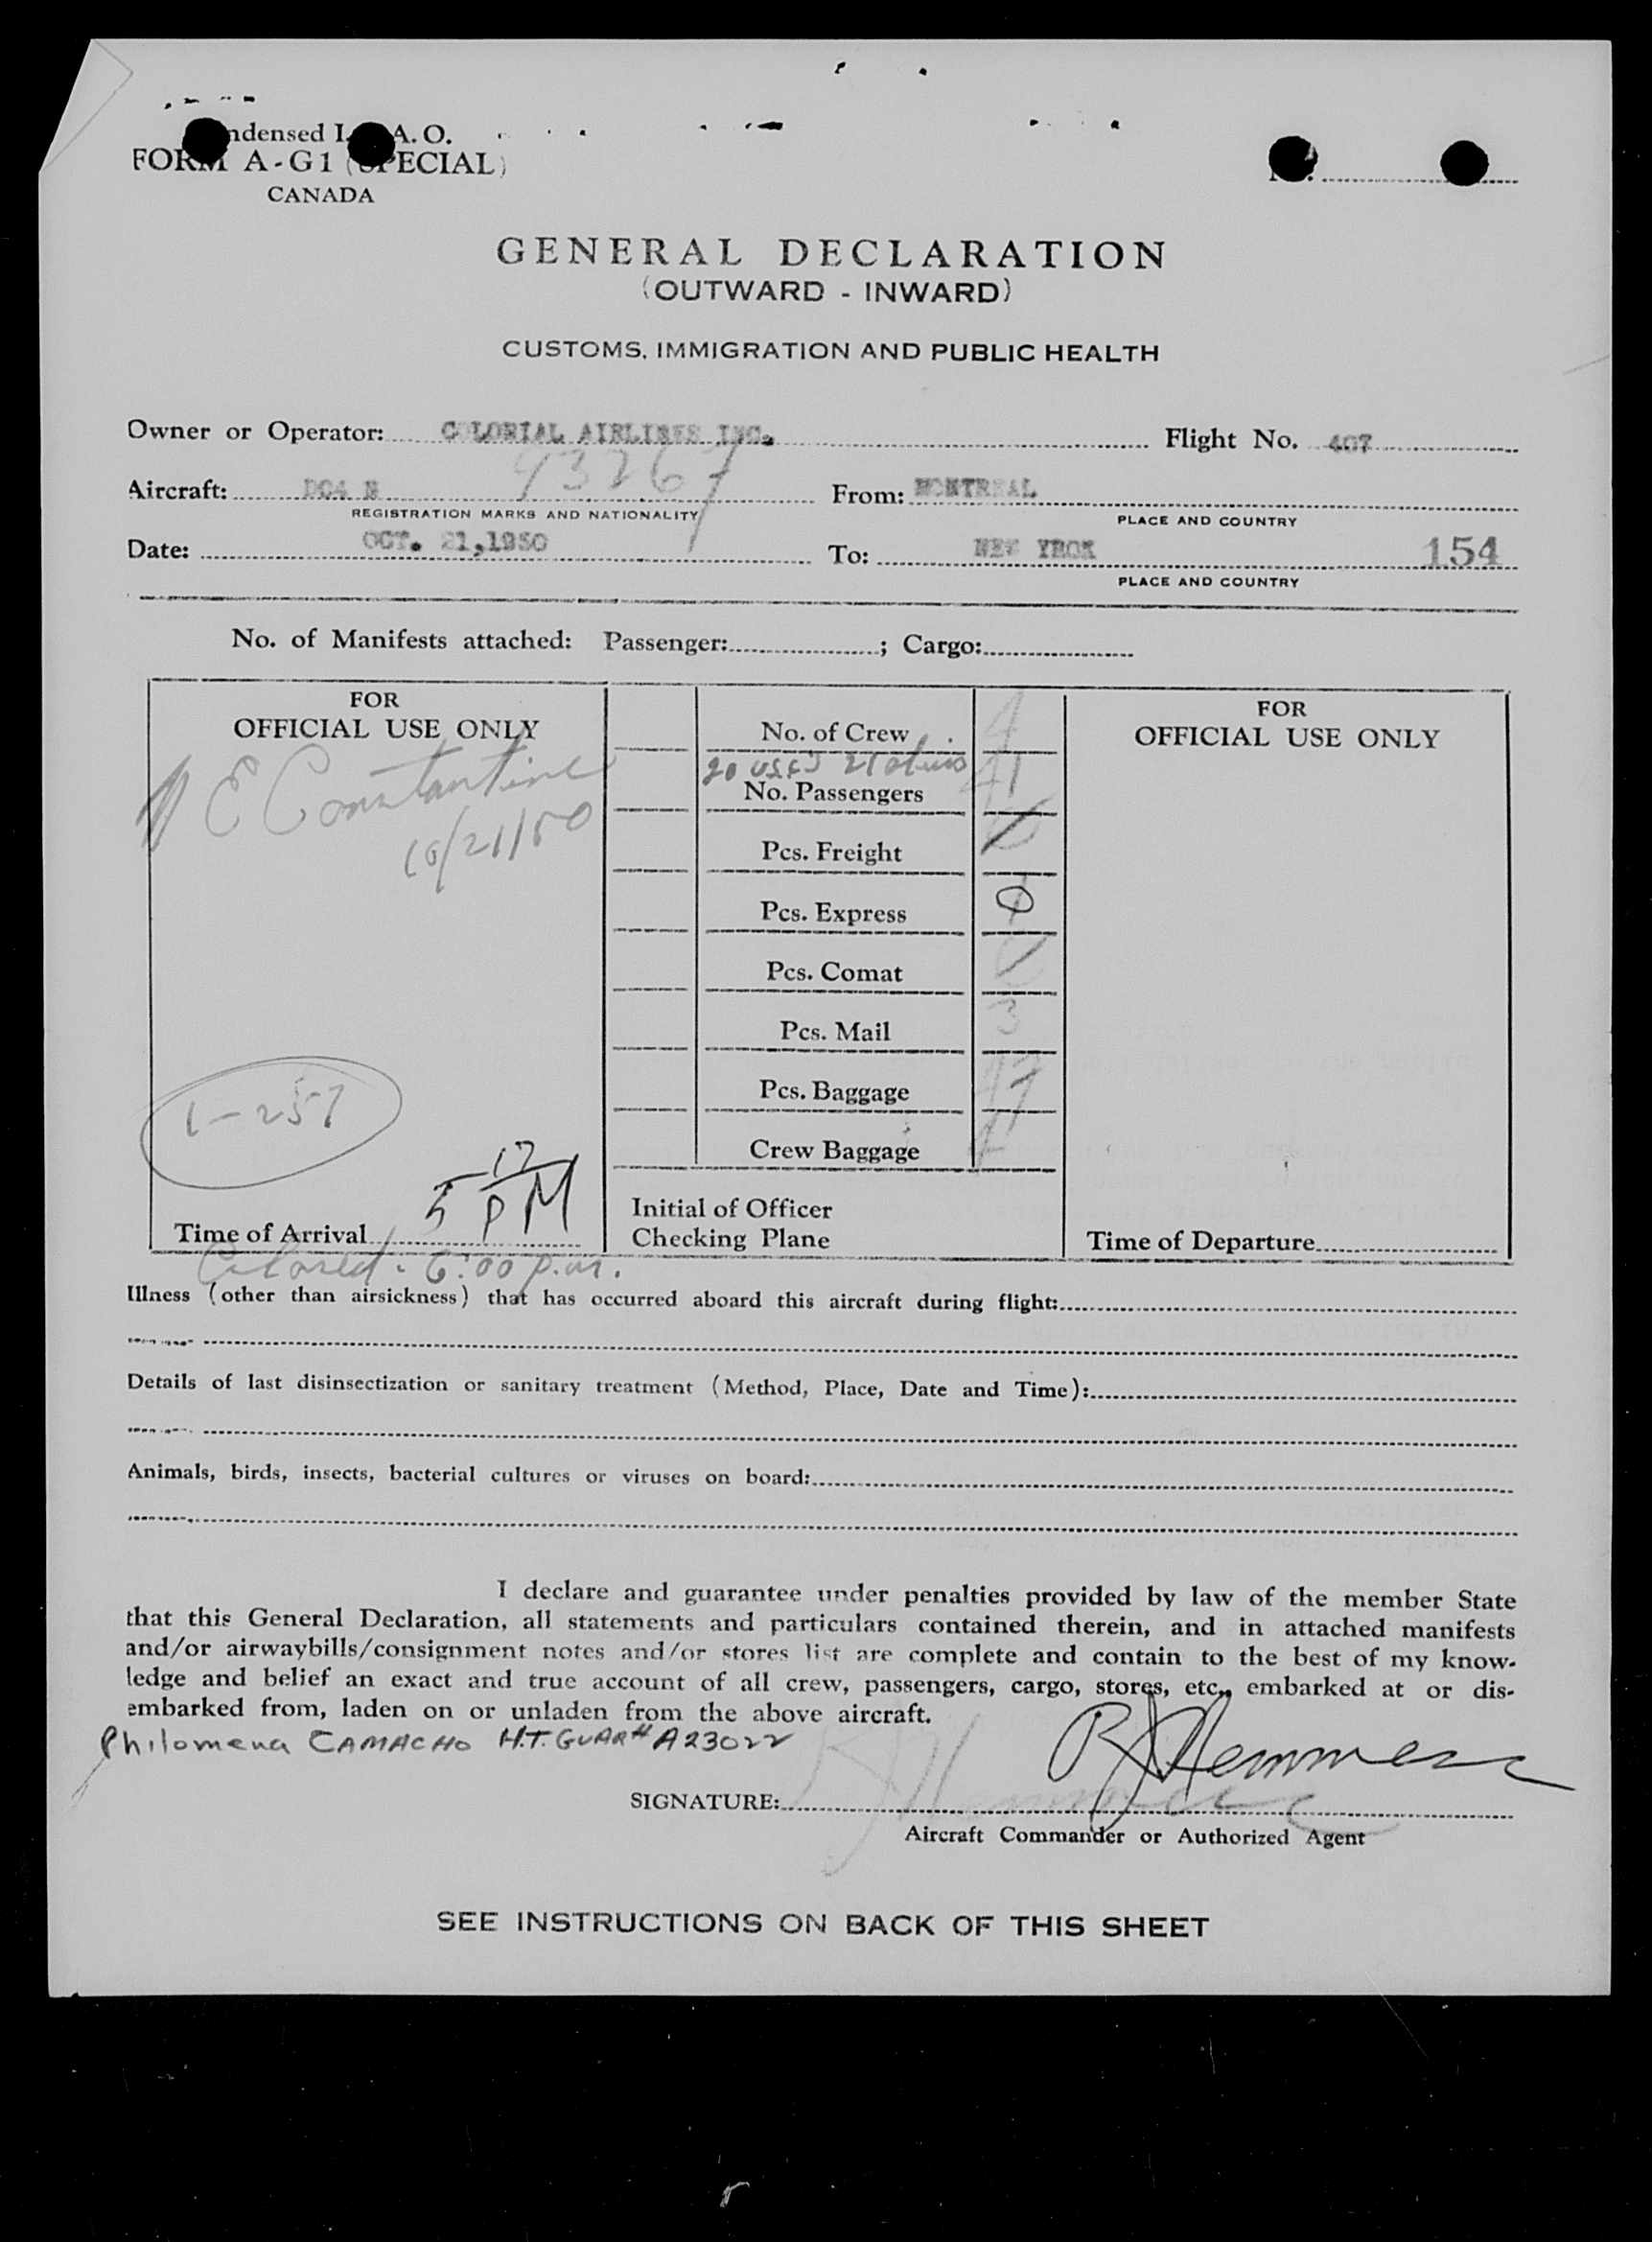 ndensed I. A. O.
FORM A-G1 (SPECIAL)
CANADA
GENERAL DECLARATION
(OUTWARD - INWARD)
CUSTOMS, IMMIGRATION AND PUBLIC HEALTH
Owner or Operator: COLONIAL AIRLINES INC. Flight No. 407
Aircraft: DC4 N 93267 From: MONTREAL
REGISTRATION MARKS AND NATIONALITY PLACE AND COUNTRY
Date: OCT. 21,1950 To: NEW YROK 154
PLACE AND COUNTRY
No. of Manifests attached: Passenger: ; Cargo:
FOR
OFFICIAL USE ONLY
E Constantine
10/21/50
1-257
5 17 PM
Time of Arrival
No. of Crew 4
20 USC's 21 aliens
No. Passengers 41
Pcs. Freight
Pcs. Express 0
Pcs. Comat
Pcs. Mail 3
Pcs. Baggage 47
Crew Baggage 4
Initial of Officer
Checking Plane
FOR
OFFICIAL USE ONLY
Time of Departure
Cleared: 6:00 p.m.
Illness (other than airsickness) that has occurred aboard this aircraft during flight:
Details of last disinsectization or sanitary treatment (Method, Place, Date and Time):
Animals, birds, insects, bacterial cultures or viruses on board:
I declare and guarantee under penalties provided by law of the member State
that this General Declaration, all statements and particulars contained therein, and in attached manifests
and/or airwaybills/consignment notes and/or stores list are complete and contain to the best of my know-
ledge and belief an exact and true account of all crew, passengers, cargo, stores, etc., embarked at or dis-
embarked from, laden on or unladen from the above aircraft.
Philomena CAMACHO H.T. GUAR# A23022
SIGNATURE:
Aircraft Commander or Authorized Agent
SEE INSTRUCTIONS ON BACK OF THIS SHEET